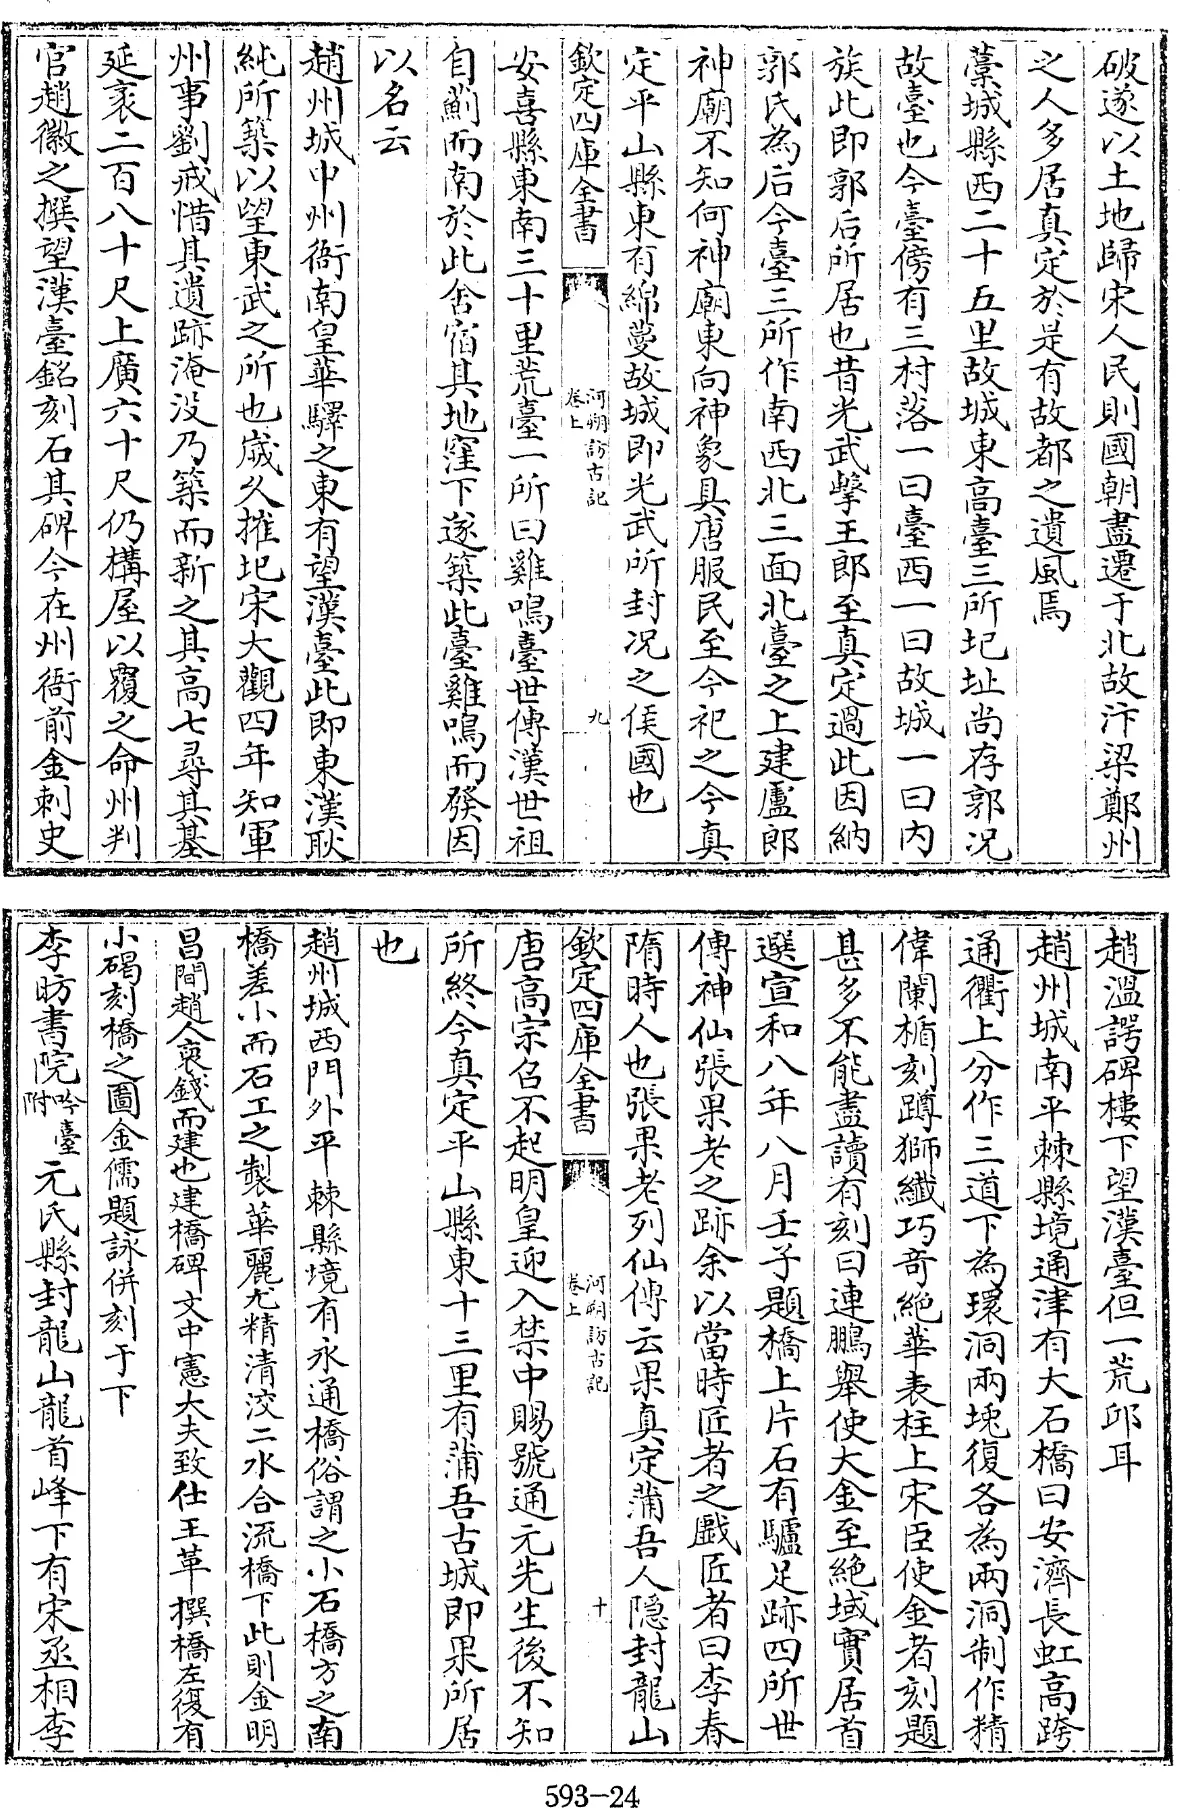 破遂以土地歸宋人民則國朝盡遷于北故汴梁鄭州
之人多居真定於是有故都之遺風焉
藁城縣西二十五里故城東高臺三所圮址尚存郭况
故臺也今臺傍有三村落一曰臺西一曰故城一曰内
族此即郭后所居也昔光武擊王郎至真定過此因納
郭氏為后今臺三所作南西北三面北臺之上建盧郎
神廟不知何神廟東向神象具唐服民至今祀之今真
定平山縣東有綿蔓故城即光武所封况之侯國也
欽定四庫全書
河朔訪古記
卷上
九
安喜縣東南三十里荒臺一所曰雞鳴臺世傳漢世祖
自薊而南於此舍宿其地窪下遂築此臺雞鳴而發因
以名云
趙州城中州衙南皇華驛之東有望漢臺此即東漢耿
純所築以望東武之所也歲久摧圯宋大觀四年知軍
州事劉戒惜其遺跡淹没乃築而新之其高七尋其基
延袤二百八十尺上廣六十尺仍構屋以覆之命州判
官趙徽之撰望漢臺銘刻石其碑今在州衙前金刺史
趙溫諤碑樓下望漢臺但一荒邱耳
趙州城南平棘縣境通津有大石橋曰安濟長虹高跨
通衢上分作三道下為環洞兩堍復各為兩洞制作精
偉闌楯刻蹲獅纖巧奇絶華表柱上宋臣使金者刻題
甚多不能盡讀有刻曰連鵬舉使大金至絶域實居首
選宣和八年八月壬子題橋上片石有驢足跡四所世
傳神仙張果老之跡余以當時匠者之戲匠者曰李春
隋時人也張果老列仙傳云果真定蒲吾人隠封龍山
欽定四庫全書
河朔訪古記
卷上
十
唐高宗召不起明皇迎入禁中賜號通元先生後不知
所終今真定平山縣東十三里有蒲吾古城即果所居
也
趙州城西門外平棘縣境有永通橋俗謂之小石橋方之南
橋差小而石工之製華麗尤精清洨二水合流橋下此則金明
昌間趙人裒錢而建也建橋碑文中憲大夫致仕王革撰橋左復有
小碣刻橋之圖金儒題詠併刻于下
李昉書院吟臺附元氏縣封龍山龍首峰下有宋丞相李
593-24